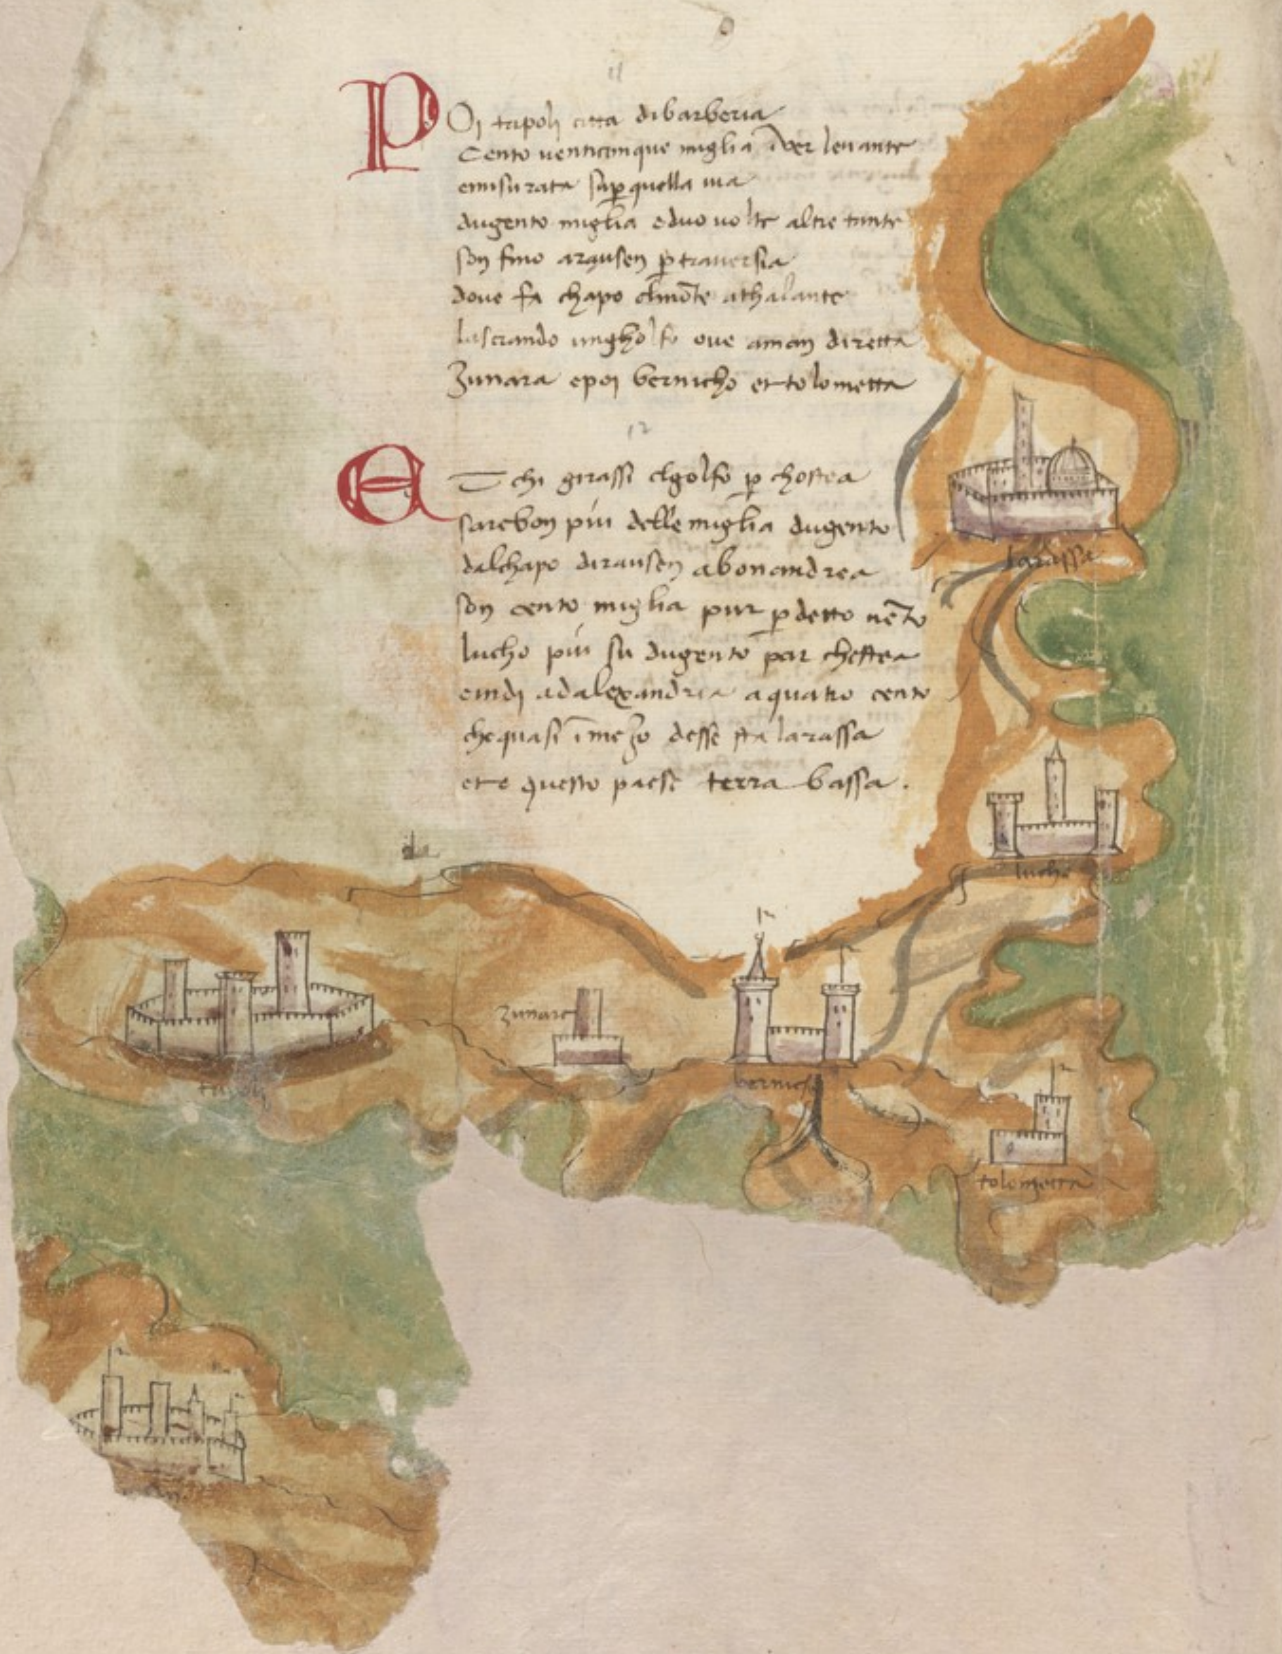 11
POi tripoli citta dibarberia
Cento uenticinque miglia iver leuante
emisurata sup quella uia
dugento miglia e duo uolte altre tante
son fino arausen p trauersia
doue fa chapo elmōte athalante
lasciando ungholfo oue aman diretta
Zunara epoi bernicho et tolometta
12
ET chi girassi elgolfo p chostea
sarebon più delle miglia dugento
dalchapo dirausen abonandrea
son cento miglia pur p detto uēto
lucho più su dugento par chessea
eindi adalexandria a quatro cento
che quasi ī mezo desse sta larassa
et e questo paese terra bassa.
larassa
lucho
zunara
tripoli
bernicho
tolometta